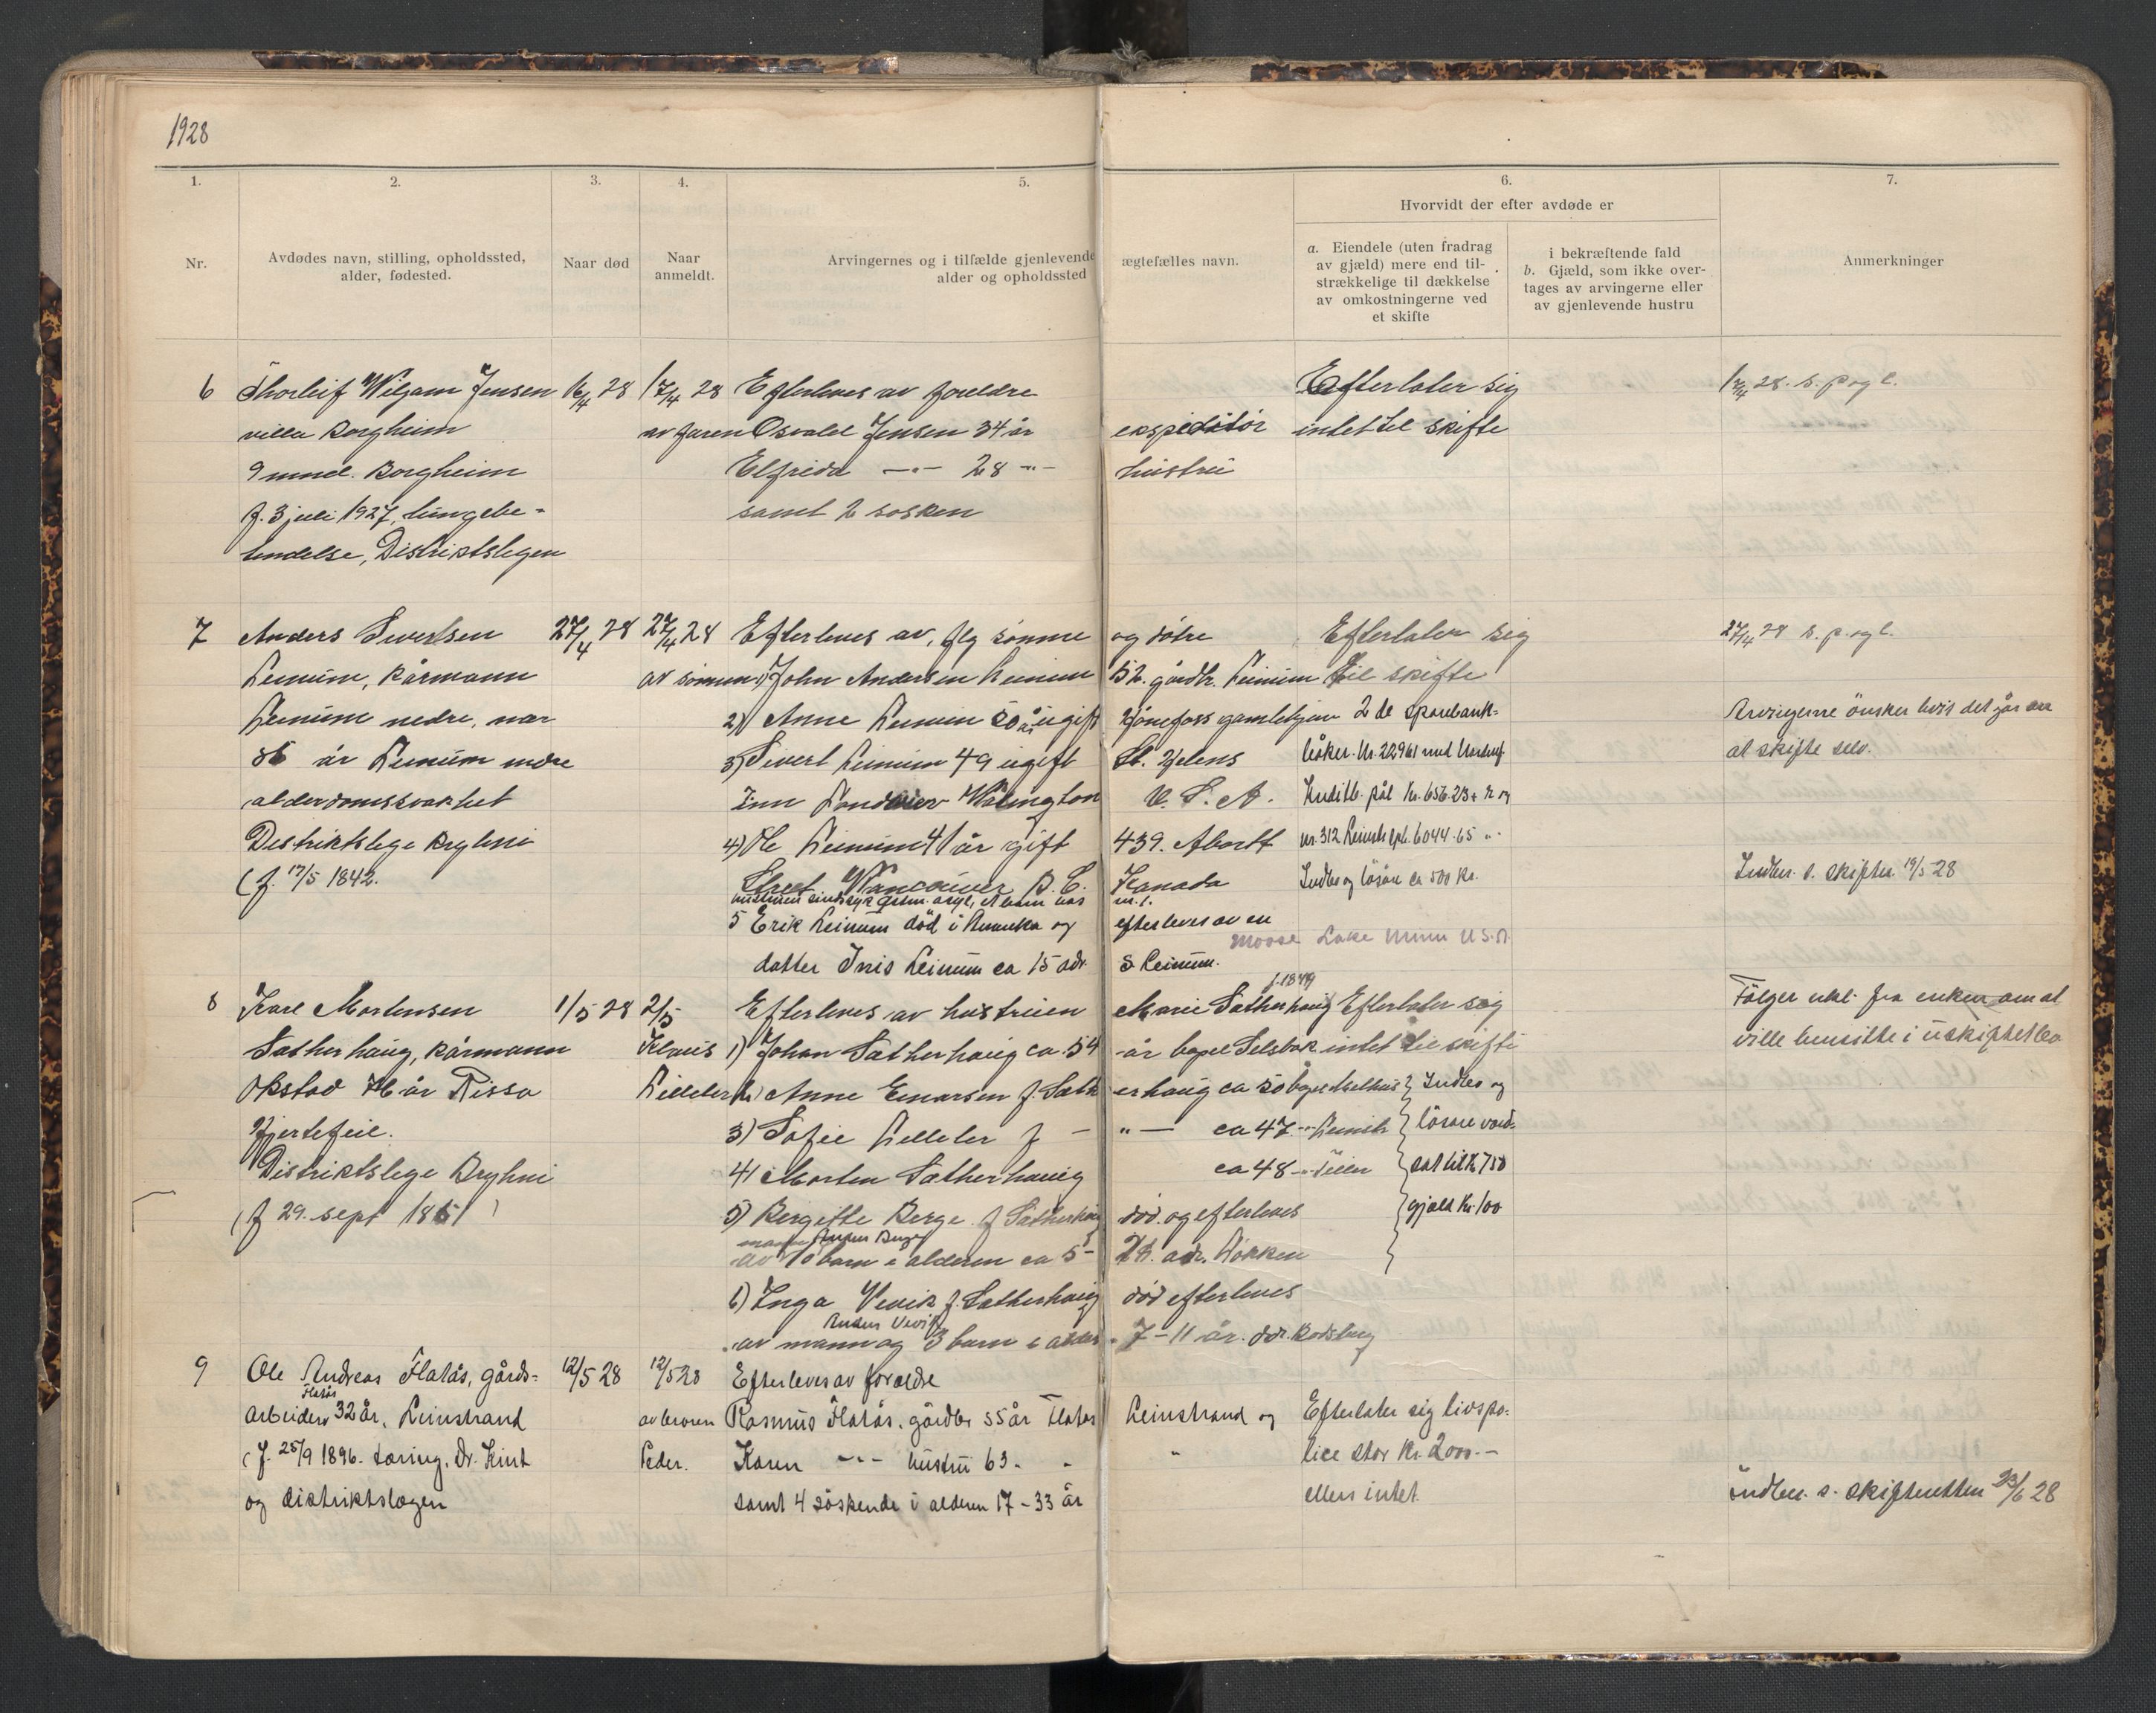 1928
1. 2. 3. 4. 5. 6. 7.
Hvorvidt der efter avdøde er
Nr.
Avdødes navn, stilling, opholdssted,
alder, fødested.
Naar død
Naar
anmeldt.
Arvingernes og i tilfælde gjenlevende ægtefælles navn.
alder og opholdssted
a. Eiendele (uten fradrag
av gjæld) mere end til-
strækkelige til dækkelse
av omkostningerne ved
et skifte
i bekræftende fald
b. Gjæld, som ikke over-
tages av arvingerne eller
av gjenlevende hustru
Anmerkninger
6 Thorleif Wiljam Jensen 16/4 28 17/4 28 Efterleves av foreldre Efterlater sig 17/4 28. s. p og l.
villa Borgheim av faren Osvald Jensen 34 år ekspeditör intet til skifte
9 mnd. Borgheim Elfrida -"- 28 -"- hustru
f. 3 juli 1927, lungebe- samt 2 søsken
tendelse, Distriktslegen
7 Anders Sivertsen 27/4 28 27/4 28 Efterleves av, flg sönner og dötre Efterlater sig 27/4 28 s. p. og l.
Leinum, kårmann av sönnen 1) John Andersen Leinum 52. gårdbr. Leinum til skifte
Leinum nedre, nær 2) Anne Leinum 50 år ugift gamlehjem 2 de sparebank- Arvingerne önsker hvis det går an
86 år Leinum nedre 3) Sivert Leinum 49 ugift St. Helens böker. Nr. 22961 med at skifte selv.
alderdomssvakhet U. S. A. Kreditb. pål. Kr. 656.23 +
Distriktslege Bryhni 4) Ole Leinum 41 år gift 439. nr. 312 6044.65 "
(f. 17/5 1842. Street Vancouver B. C. Kanada Indbo og lösöre ca 500 kr. Indber. s. skifter. 19/5 28
5 Erik Leinum död i Amerika og efterleves av en
Moose Lake Minn U S. A.
datter Inis Leinum ca 15 adr. S Leinum.
f. 1849
8 Karl Mortensen 1/5 28 2/5 Efterleves av hustruen Marie Sætherhaug Efterlater sig Fölger erkl. fra enken om at
Sætherhaug, kårmann Klaus 1) Johan Sætherhaug ca. 54 år bopel Selsbak intet til skifte ville hensitte i uskiftet bo
Okstad år Rissa Lilleler 2) Anne Einarsen f. Sætherhaug ca 50 Indbo og
Hjertefeil. 3) Sofie Lilleler f - " - ca 47 -"- Leinstr lösöre vord-
Distriktslege Bryhni 4) Morten Sætherhaug ca 48 -"- Tiller sat til kr 750
(f 29. sept 1851) 5) Bergitte Berge f Sætherhaug död og efterleves gjæld kr. 100
mann Anders Berge
av 10 barn i alderen ca 5 - adr. Lökken
6) Inga Vevik f. Sætherhaug död efterleves
Anders Vevik
av mann og 3 barn i alder. 7 - 11 år. adr.
9 Ole Andreas Flatås, gårds- 12/5 28 12/5 28 Efterleves av foreldre
Flatås
arbeider 32 år, Leinstrand av broren Rasmus Flatås, gårdbr 55 år Flatås Leinstrand og Efterlater sig livspo-
(f. 25/9 1896. tæring, Dr. Kint Peder. Karen -"- hustru 63 " " " lice stor kr. 2000.-
og distriktslægen samt 4 söskende i alderen 17 - 33 år ellers intet. Indber. s. skifteretten 23/6 28